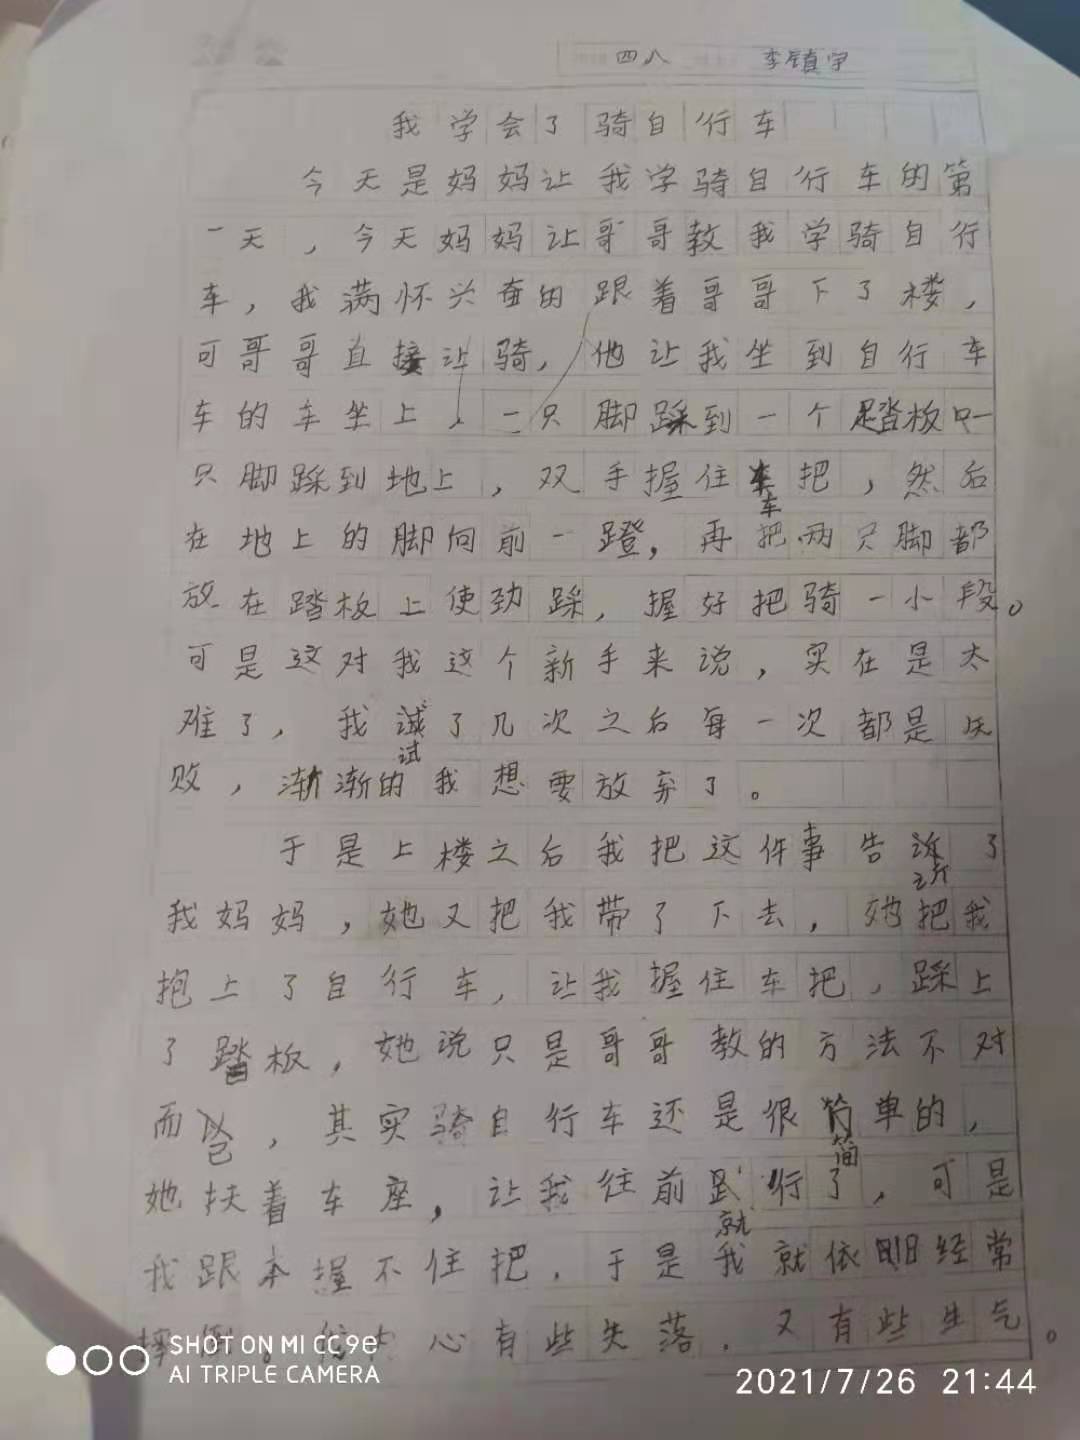 四八 李镇宇
我学会了骑自行车
今天是妈妈让我学骑自行车的第
一天，今天妈妈让哥哥教我学骑自行
车，我满怀兴奋的跟着哥哥下了楼，
可哥哥直接让骑，他让我坐到自行车
车的车坐上，一只脚踩到一个踏板只一
只脚踩到地上，双手握住车把，然后
在地上的脚向前一蹬，再把两只脚都
放在踏板上使劲踩，握好把骑一小段。
可是这对我这个新手来说，实在是太
难了，我试了几次之后每一次都是失
败，渐渐的我想要放弃了。
于是上楼之后我把这件事告诉了
我妈妈，她又把我带了下去，她把我
抱上了自行车，让我握住车把，踩上
了踏板，她说只是哥哥教的方法不对
而已，其实骑自行车还是很简单的，
她扶着车座，让我往前就行了，可是
我跟本握不住把，于是我就依旧经常
摔倒。我内心有些失落，又有些生气。
SHOT ON MI CC 9e
AI TRIPLE CAMERA
2021/7/26 21:44